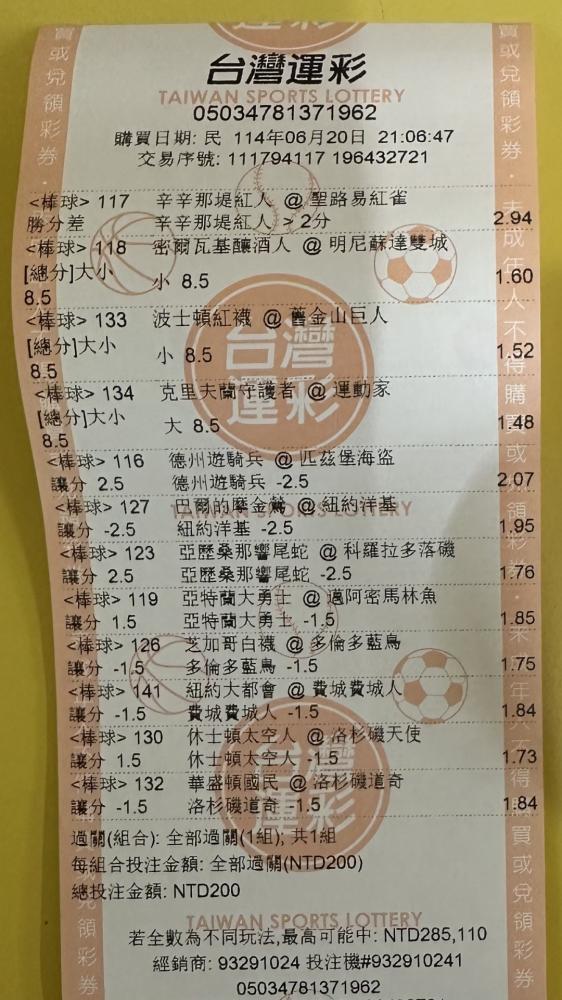 台灣運彩
TAIWAN SPORTS LOTTERY
05034781371962
購買日期: 民 114年06月20日 21:06:47
交易序號: 111794117 196432721
<棒球> 117 辛辛那堤紅人 @ 聖路易紅雀
勝分差 辛辛那堤紅人 > 2分 2.94
<棒球> 118 密爾瓦基釀酒人 @ 明尼蘇達雙城
[總分]大小 小 8.5 1.60
8.5
<棒球> 133 波士頓紅襪 @ 舊金山巨人
[總分]大小 小 8.5 1.52
8.5
<棒球> 134 克里夫蘭守護者 @ 運動家
[總分]大小 大 8.5 1.48
8.5
<棒球> 116 德州遊騎兵 @ 匹茲堡海盜
讓分 2.5 德州遊騎兵 -2.5 2.07
<棒球> 127 巴爾的摩金鶯 @ 紐約洋基
讓分 -2.5 紐約洋基 -2.5 1.95
<棒球> 123 亞歷桑那響尾蛇 @ 科羅拉多落磯
讓分 2.5 亞歷桑那響尾蛇 -2.5 1.76
<棒球> 119 亞特蘭大勇士 @ 邁阿密馬林魚
讓分 1.5 亞特蘭大勇士 -1.5 1.85
<棒球> 126 芝加哥白襪 @ 多倫多藍鳥
讓分 -1.5 多倫多藍鳥 -1.5 1.75
<棒球> 141 紐約大都會 @ 費城費城人
讓分 -1.5 費城費城人 -1.5 1.84
<棒球> 130 休士頓太空人 @ 洛杉磯天使
讓分 1.5 休士頓太空人 -1.5 1.73
<棒球> 132 華盛頓國民 @ 洛杉磯道奇
讓分 -1.5 洛杉磯道奇 -1.5 1.84
過關(組合): 全部過關(1組); 共1組
每組合投注金額: 全部過關(NTD200)
總投注金額: NTD200
TAIWAN SPORTS LOTTERY
若全數為不同玩法,最高可能中: NTD285,110
經銷商: 93291024 投注機#932910241
05034781371962